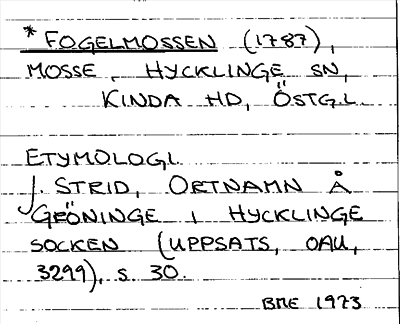 * FOGELMOSSEN (1787),
MOSSE, HYCKLINGE SN,
KINDA HD, ÖSTGL.
ETYMOLOGI.
J. STRID, ORTNAMN Å
GRÖNINGE I HYCKLINGE
SOCKEN (UPPSATS, OAU,
3299), S 30.
BME 1973